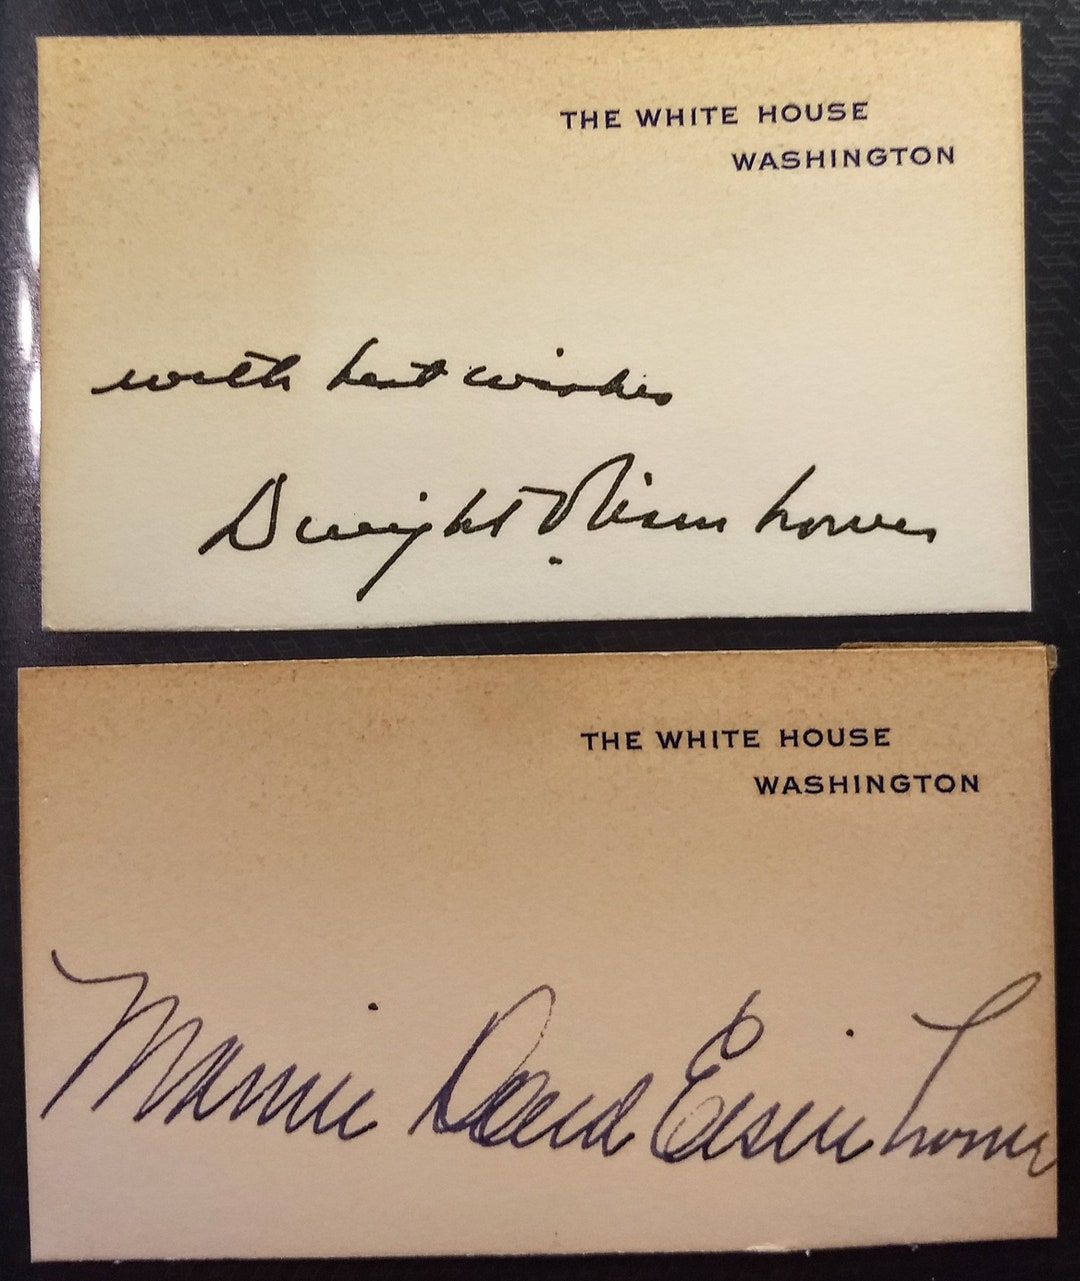 THE WHITE HOUSE
WASHINGTON
with best wishes
Dwight D Eisenhower
THE WHITE HOUSE
WASHINGTON
Mamie Doud Eisenhower